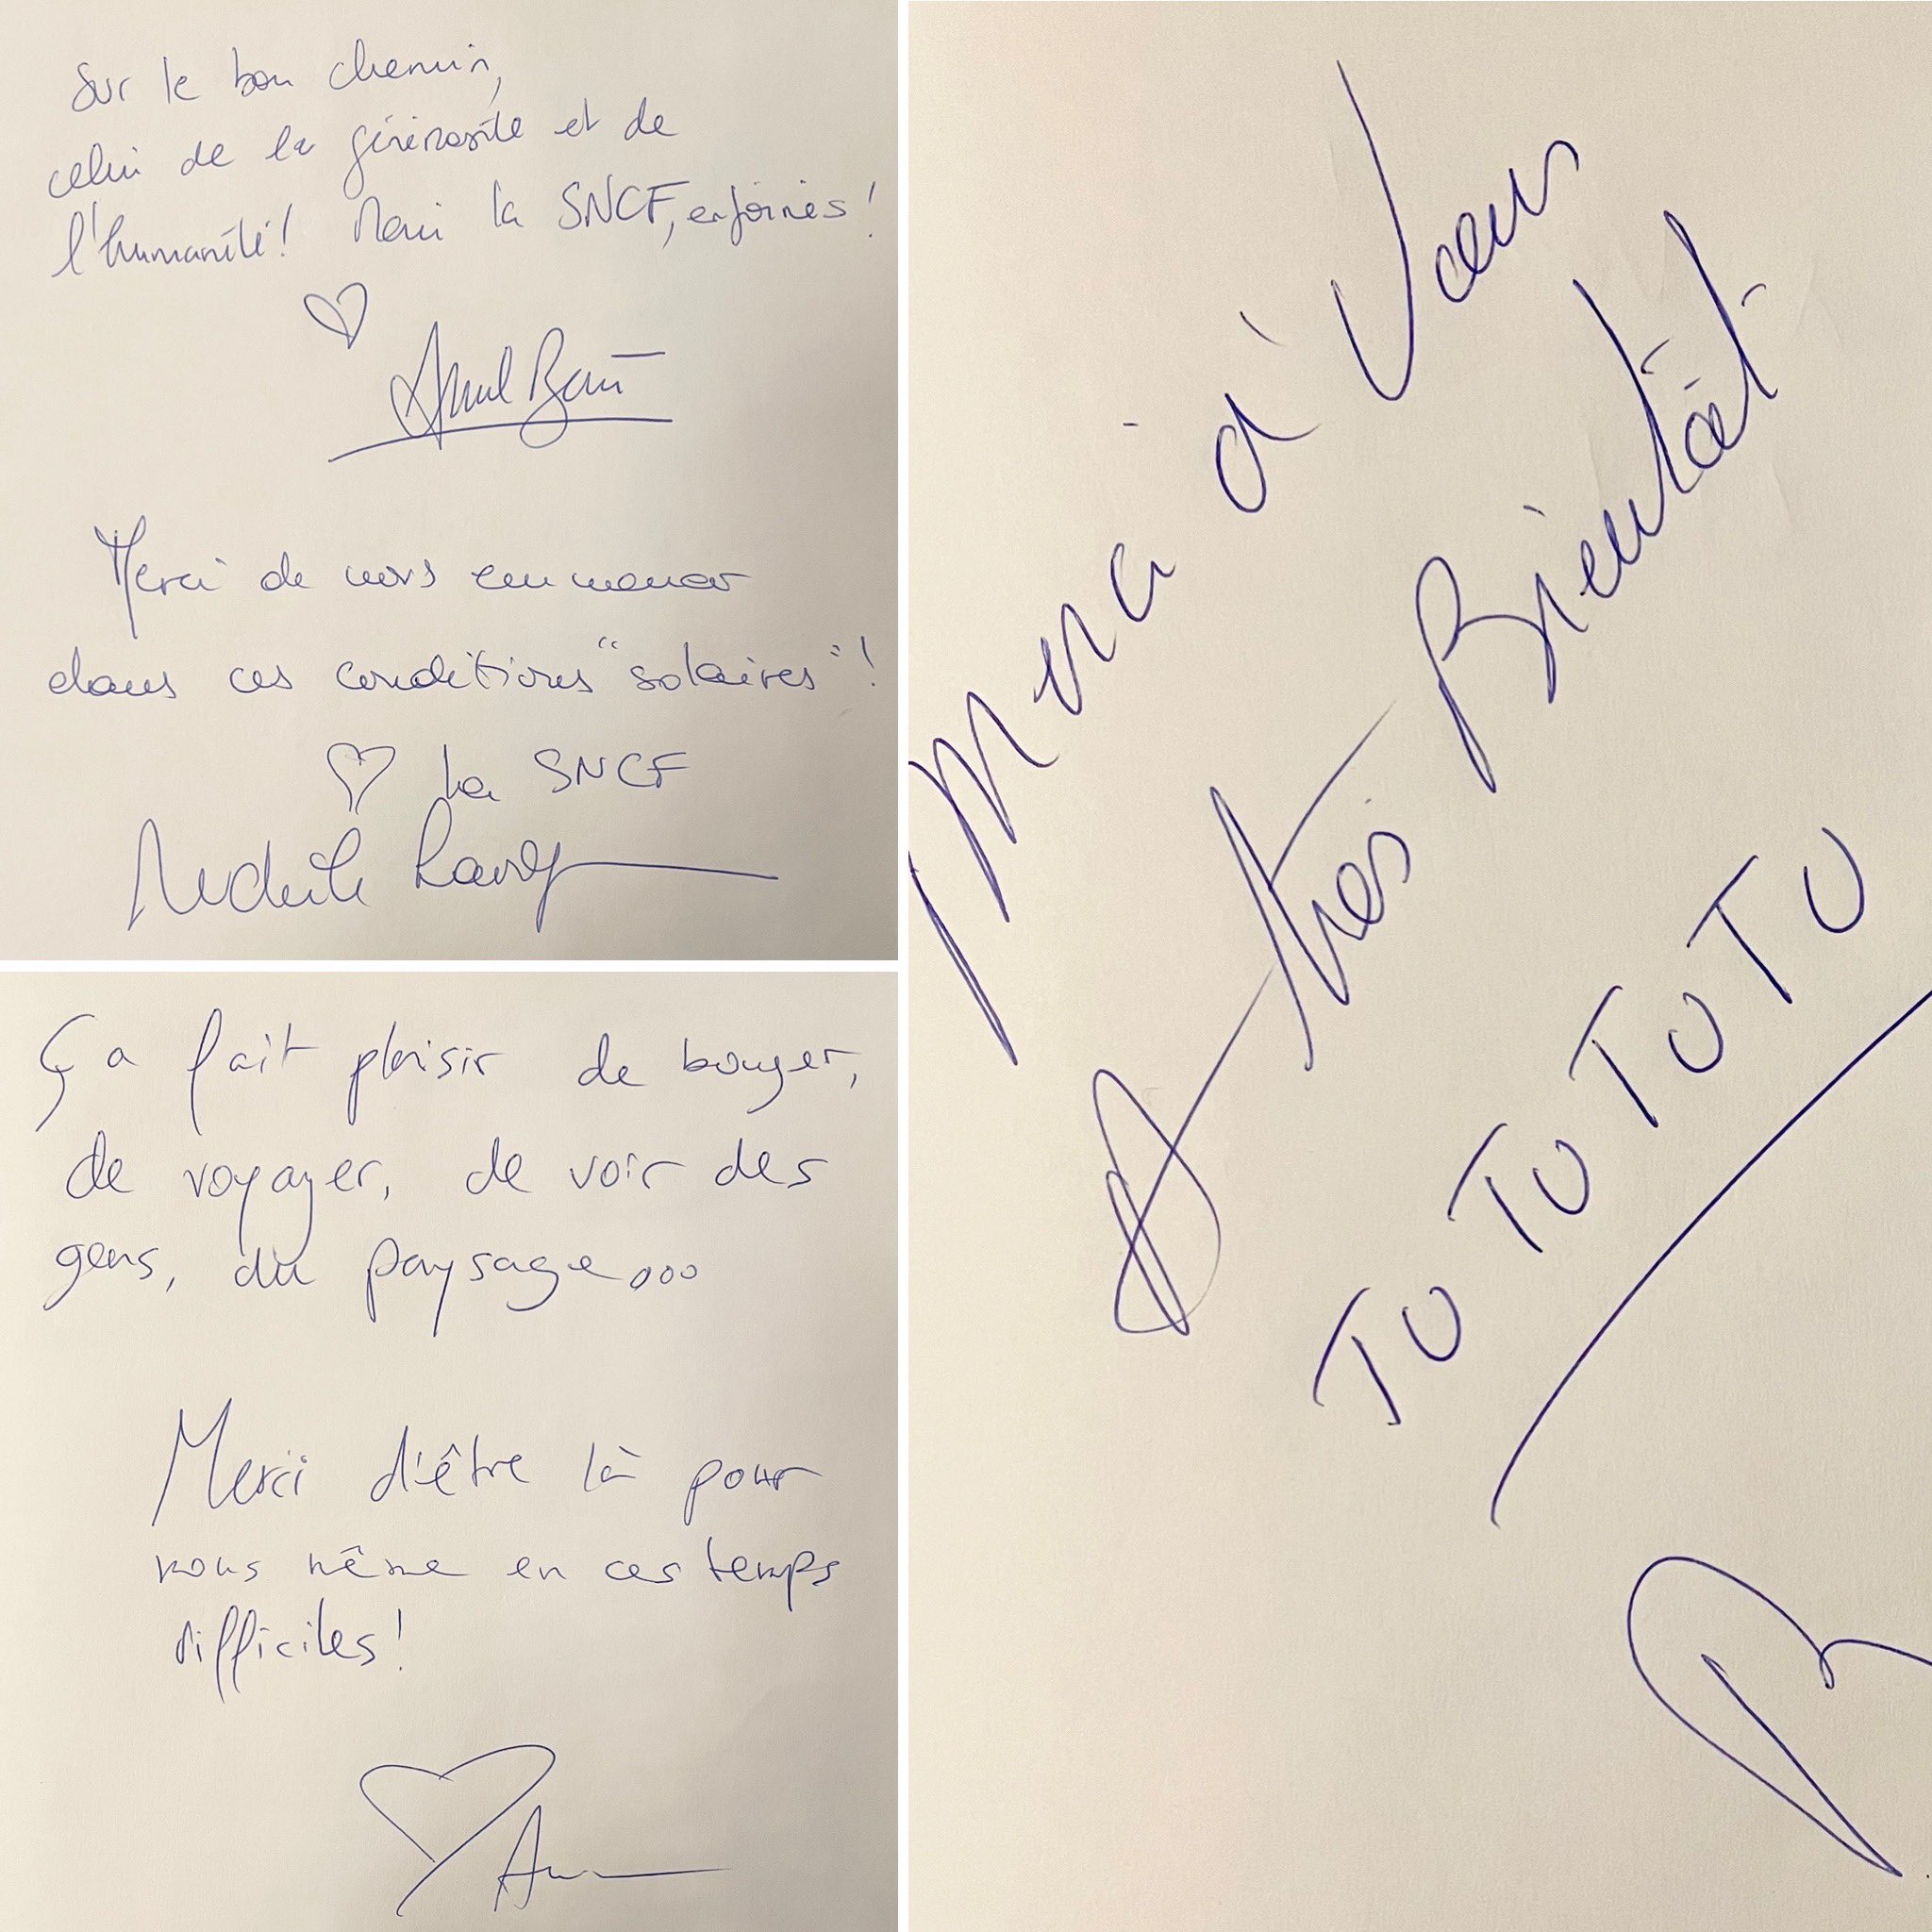 Sur le bon chemin,
celui de la générosité et de
l'humanité! Merci la SNCF, enfoirés!
Merci de nous emmener
dans ces conditions "solaires"!
La SNCF
Ça fait plaisir de bouger,
de voyager, de voir des
gens, du paysage...
Merci d'être là pour
nous même en ces temps
difficiles!
Merci à Vous
A très Bientôt
TU TU TU TU TU